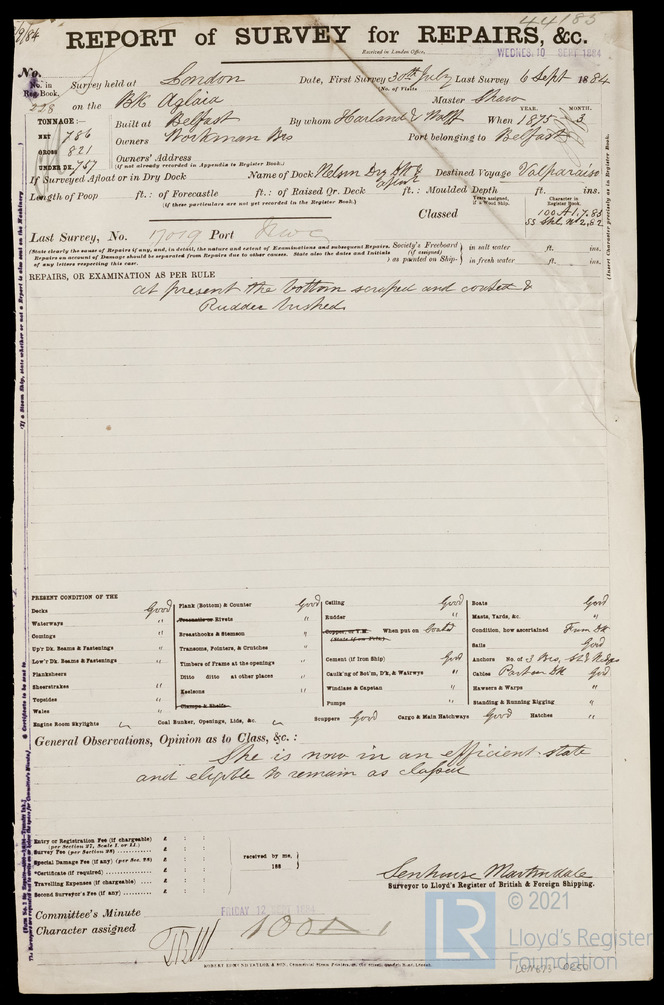 44185
REPORT of SURVEY for REPAIRS, &c.
Received in London Office, WEDNES. 10 SEPT 1884
No. Survey held at London Date, First Survey 30th July Last Survey 6 Sept 1884
No. in Reg. Book. (No. of Visits)
228 on the Bk Aglaia Master Shaw
TONNAGE:— Built at Belfast By whom Harland & Wolff When 1875 - 3 YEAR. MONTH.
NET 786 Owners Workman Bros Port belonging to Belfast
GROSS 821 Owners' Address
UNDER DK. 757 (if not already recorded in Appendix to Register Book.)
If Surveyed Afloat or in Dry Dock Name of Dock Nelson Dry Dk & afloat Destined Voyage Valparaiso
Length of Poop ft.: of Forecastle ft.: of Raised Qr. Deck ft.: Moulded Depth ft. ins.
(if these particulars are not yet recorded in the Register Book.)
Classed
Years assigned, if a Wood Ship. Character in Register Book.
100 A1. 7.83
Last Survey, No. 17019 Port
(State clearly the cause of Repairs if any, and, in detail, the nature and extent of Examinations and subsequent Repairs.
Repairs on account of Damage should be separated from Repairs due to other causes. State also the dates and Initials
of any letters respecting this case.
Society's Freeboard (if assigned) as painted on Ship- in salt water ft. ins.
in fresh water ft. ins.
REPAIRS, OR EXAMINATION AS PER RULE
At present the bottom scraped and coated &
Rudder bushed.
PRESENT CONDITION OF THE
Decks Good
Waterways "
Comings "
Up'r Dk. Beams & Fastenings "
Low'r Dk. Beams & Fastenings "
Planksheers
Sheerstrakes "
Topsides "
Wales "
Engine Room Skylights
Plank (Bottom) & Counter Good
Treenails or Rivets "
Breasthooks & Stemson "
Transoms, Pointers, & Crutches "
Timbers of Frame at the openings "
Ditto ditto at other places "
Keelsons "
Clamps & Shelfs
Coal Bunker, Openings, Lids, &c.
Ceiling Good
Rudder "
Copper, or Y.M. When put on Coated
(State if on Felt.)
Cement (if Iron Ship) Good
Caulk'g of Bot'm, D'k, & Watrwys "
Windlass & Capstan "
Pumps "
Scuppers Good Cargo & Main Hatchways Good Hatches "
Boats Good
Masts, Yards, &c. "
Condition, how ascertained From Dk
Sails Good
Anchors No. of 3 Brs,
Cables Part on Dk Good
Hawsers & Warps "
Standing & Running Rigging "
General Observations, Opinion as to Class, &c.:
She is now in an efficient state
and eligible to remain as classed
Entry or Registration Fee (if chargeable) £ : :
(per Section 27, Scale I. or II.)
Survey Fee (per Section 28) £ : :
Special Damage Fee (if any) (per Sec. 28) £ : :
*Certificate (if required) £ : :
Travelling Expenses (if chargeable) £ : :
Second Surveyor's Fee (if any) £ : :
received by me,
188
Senhouse Martindale
Surveyor to Lloyd's Register of British & Foreign Shipping.
Committee's Minute FRIDAY 12 SEPT 1884
Character assigned 100 A 1
© 2021
LR
Lloyd's Register
Foundation